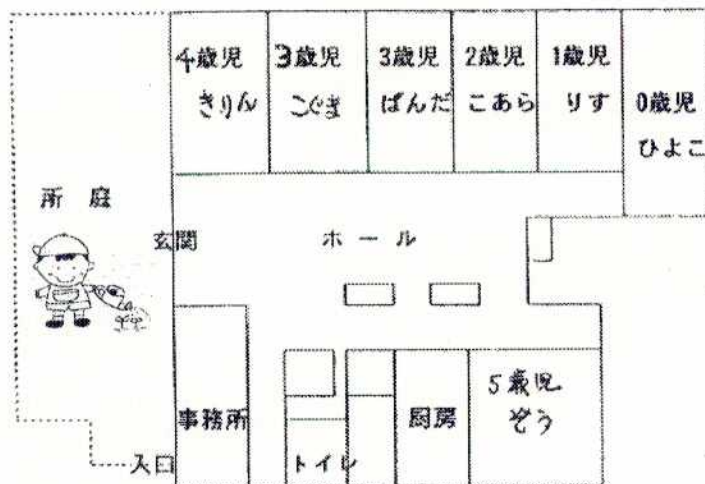 4歳児
きりん
3歳児
こぐま
3歳児
ぱんだ
2歳児
こあら
1歳児
りす
0歳児
ひよこ
所庭
玄関
ホール
事務所
厨房
5歳児
ぞう
入口
トイレ